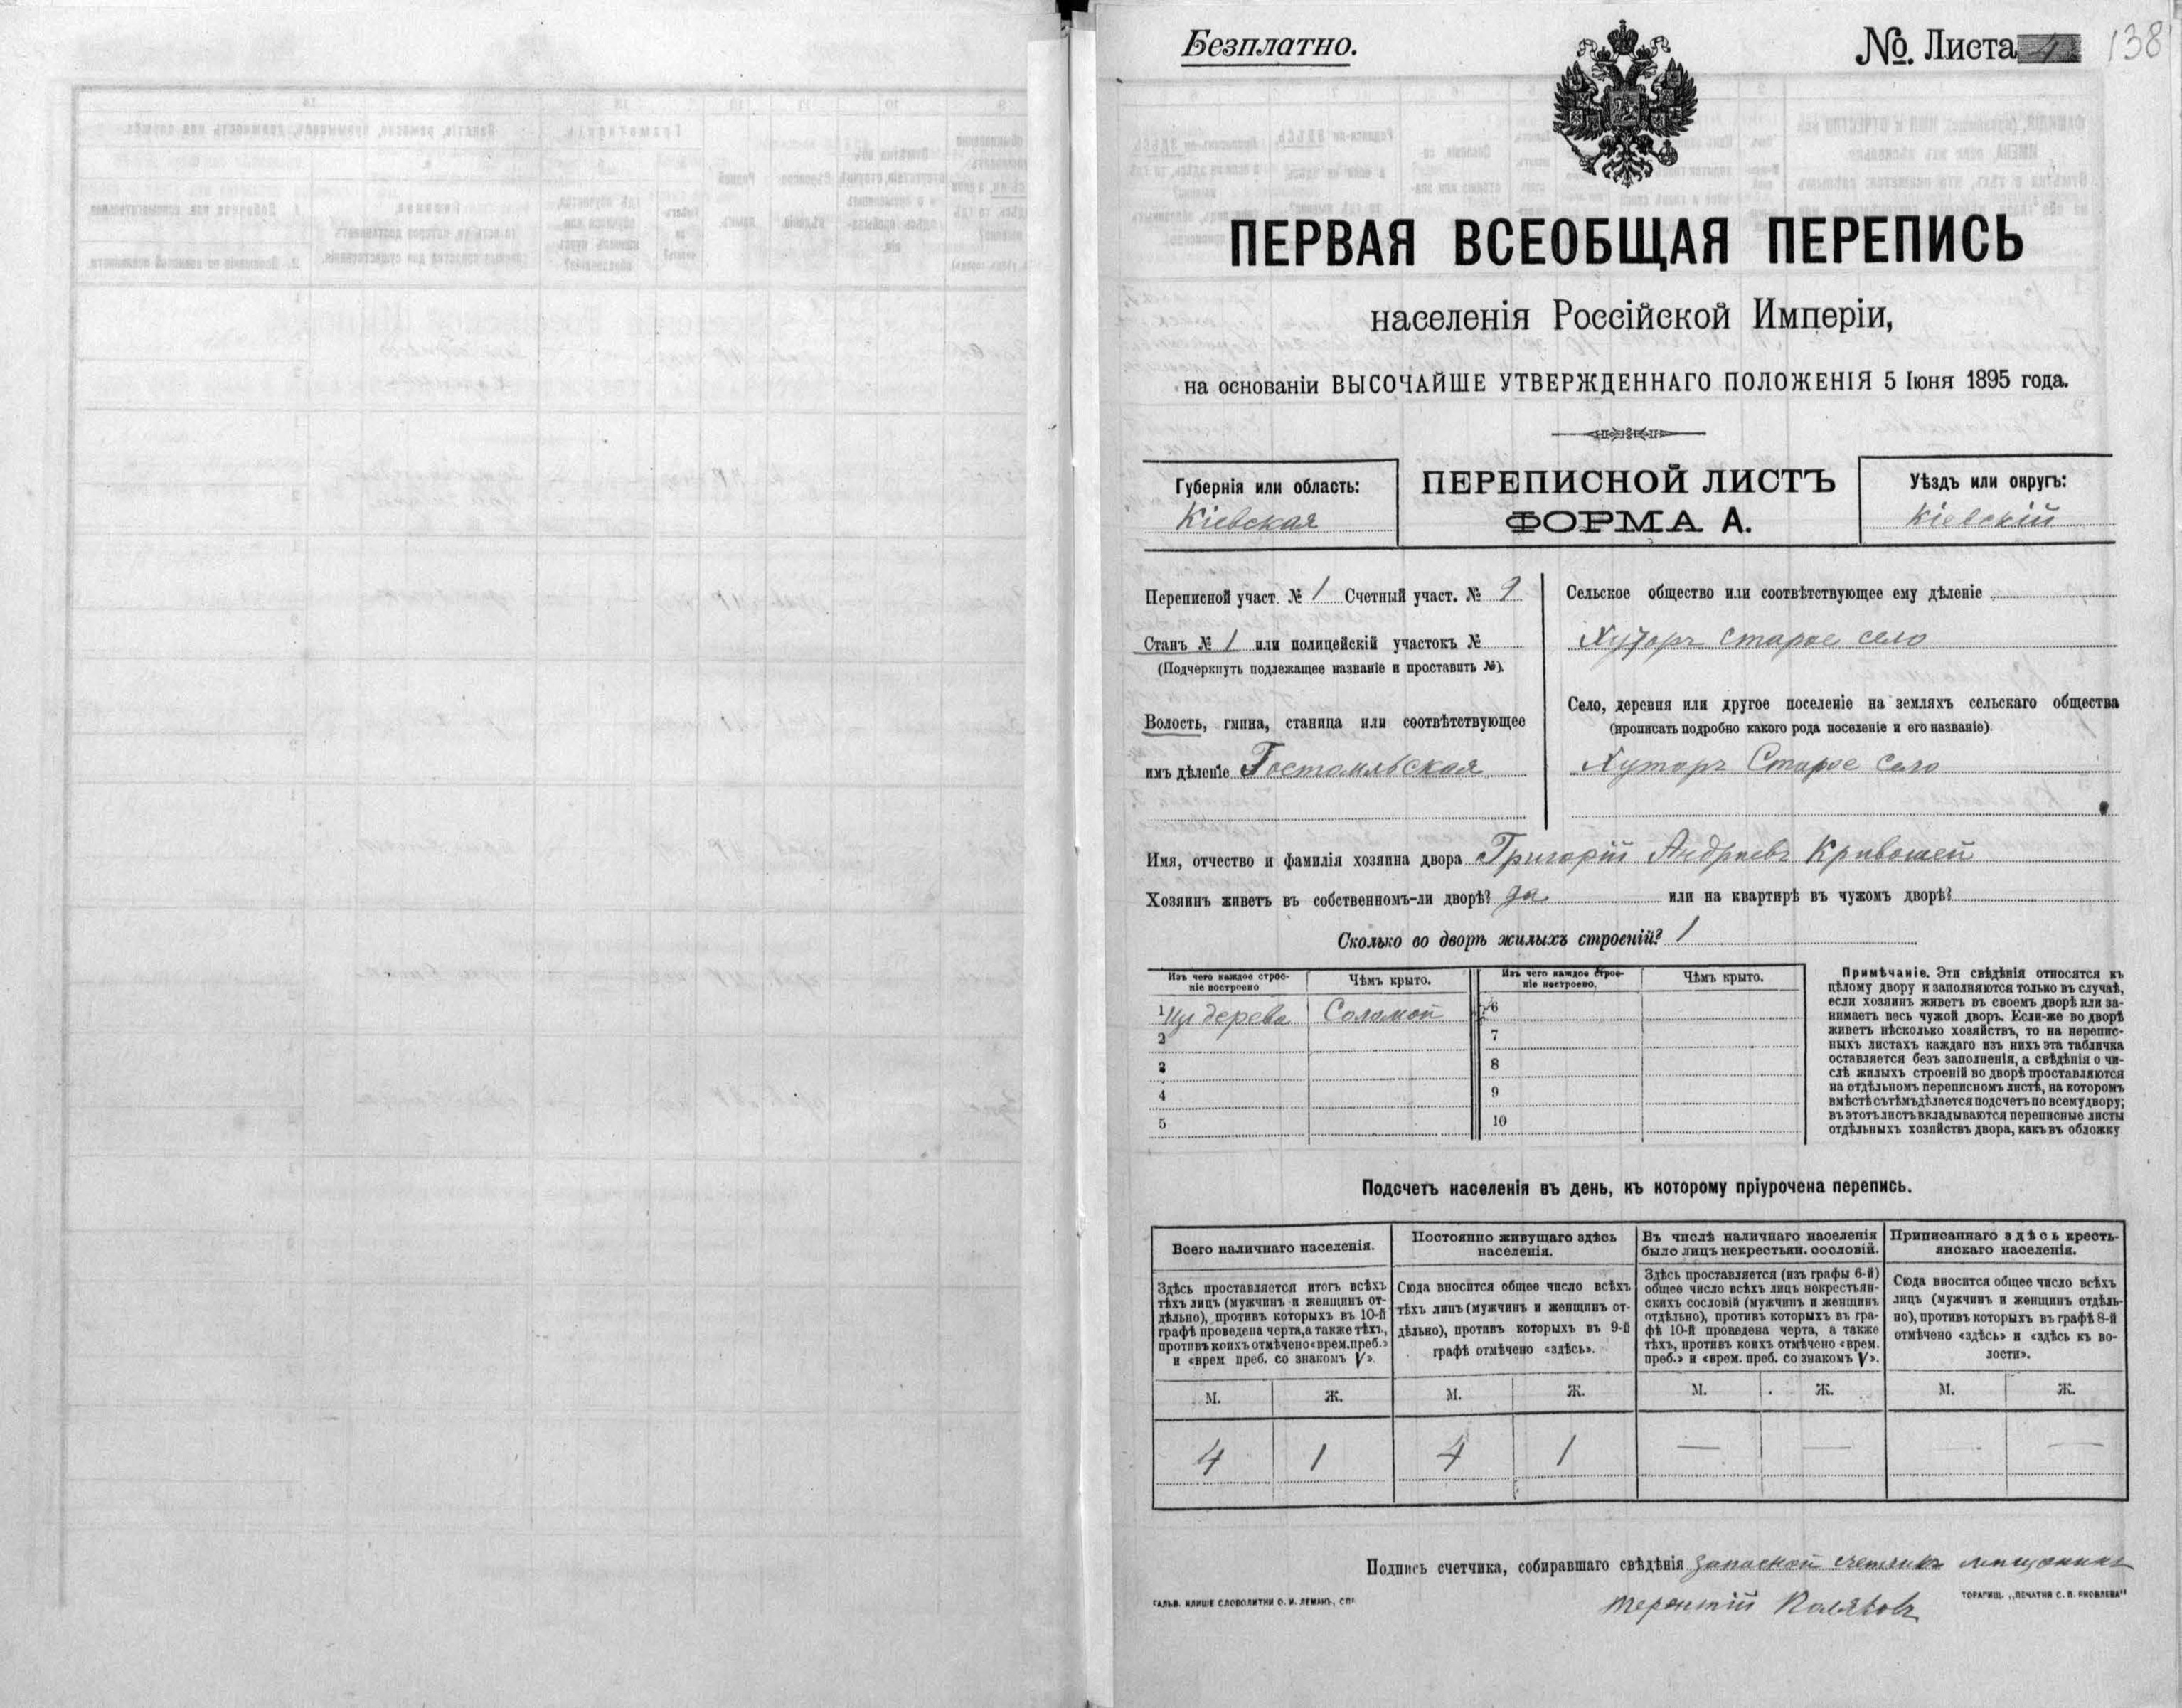 Безплатно.
№. Листа 4
138
ПЕРВАЯ ВСЕОБЩАЯ ПЕРЕПИСЬ
населенія Россійской Имперіи,
на основаніи ВЫСОЧАЙШЕ УТВЕРЖДЕННАГО ПОЛОЖЕНІЯ 5 Іюня 1895 года.
Губернія или область:
Кіевская
ПЕРЕПИСНОЙ ЛИСТЪ
ФОРМА А.
Уѣздъ или округъ:
Кіевскій
Переписной участ. № 1 Счетный участ. № 9
Станъ № 1 или полицейскій участокъ №
(Подчеркнуть подлежащее названіе и проставить №).
Волость, гмина, станица или соотвѣтствующее
имъ дѣленіе Гостомльская
Сельское общество или соотвѣтствующее ему дѣленіе
Хуторъ Старое село
Село, деревня или другое поселеніе на земляхъ сельскаго общества
(прописать подробно какого рода поселеніе и его названіе)
Хуторъ Старое Село
Имя, отчество и фамилія хозяина двора Григорій Андреевъ Кривошей
Хозяинъ живетъ въ собственномъ-ли дворѣ? да или на квартирѣ въ чужомъ дворѣ?
Сколько во дворѣ жилыхъ строеній? 1
Изъ чего каждое строе-
ніе построено
Чѣмъ крыто.
Изъ чего каждое строе-
ніе построено.
Чѣмъ крыто.
1 Из дерева Соломой 6
2 7
3 8
4 9
5 10
Примѣчаніе. Эти свѣдѣнія относятся къ
цѣлому двору и заполняются только въ случаѣ,
если хозяинъ живетъ въ своемъ дворѣ или за-
нимаетъ весь чужой дворъ. Если-же во дворѣ
живетъ нѣсколько хозяйствъ, то на перепис-
ныхъ листахъ каждаго изъ нихъ эта табличка
оставляется безъ заполненія, а свѣдѣнія о чи-
слѣ жилыхъ строеній во дворѣ проставляются
на отдѣльномъ переписномъ листѣ, на которомъ
вмѣстѣ съ тѣмъ дѣлается подсчетъ по всему двору;
въ этотъ листъ вкладываются переписные листы
отдѣльныхъ хозяйствъ двора, какъ въ обложку
Подсчетъ населенія въ день, къ которому пріурочена перепись.
Всего наличнаго населенія.
Здѣсь проставляется итогъ всѣхъ
тѣхъ лицъ (мужчинъ и женщинъ от-
дѣльно), противъ которыхъ въ 10-й
графѣ проведена черта, а также тѣхъ,
противъ коихъ отмѣчено «врем. преб.»
и «врем преб. со знакомъ V».
Постоянно живущаго здѣсь
населенія.
Сюда вносится общее число всѣхъ
тѣхъ лицъ (мужчинъ и женщинъ от-
дѣльно), противъ которыхъ въ 9-й
графѣ отмѣчено «здѣсь».
Въ числѣ наличнаго населенія
было лицъ некрестьян. сословій.
Здѣсь проставляется (изъ графы 6-й)
общее число всѣхъ лицъ некрестьян-
скихъ сословій (мужчинъ и женщинъ
отдѣльно), противъ которыхъ въ гра-
фѣ 10-й проведена черта, а также
тѣхъ, противъ коихъ отмѣчено «врем.
преб.» и «врем. преб. со знакомъ V».
Приписаннаго здѣсь кресть-
янскаго населенія.
Сюда вносится общее число всѣхъ
лицъ (мужчинъ и женщинъ отдѣль-
но), противъ которыхъ въ графѣ 8-й
отмѣчено «здѣсь» и «здѣсь къ во-
лости».
М. Ж. М. Ж. М. Ж. М. Ж.
4 1 4 1 — — —
Подпись счетчика, собиравшаго свѣдѣнія запасной счетчикъ мещанинъ
Терентій Поляковъ
ГАЛЬВ. КЛИШЕ СЛОВОЛИТНИ О. И. ЛЕМАНЪ, СПБ
ТОРАГИЩ. „ПЕЧАТНЯ С. П. ЯКОВЛЕВА"